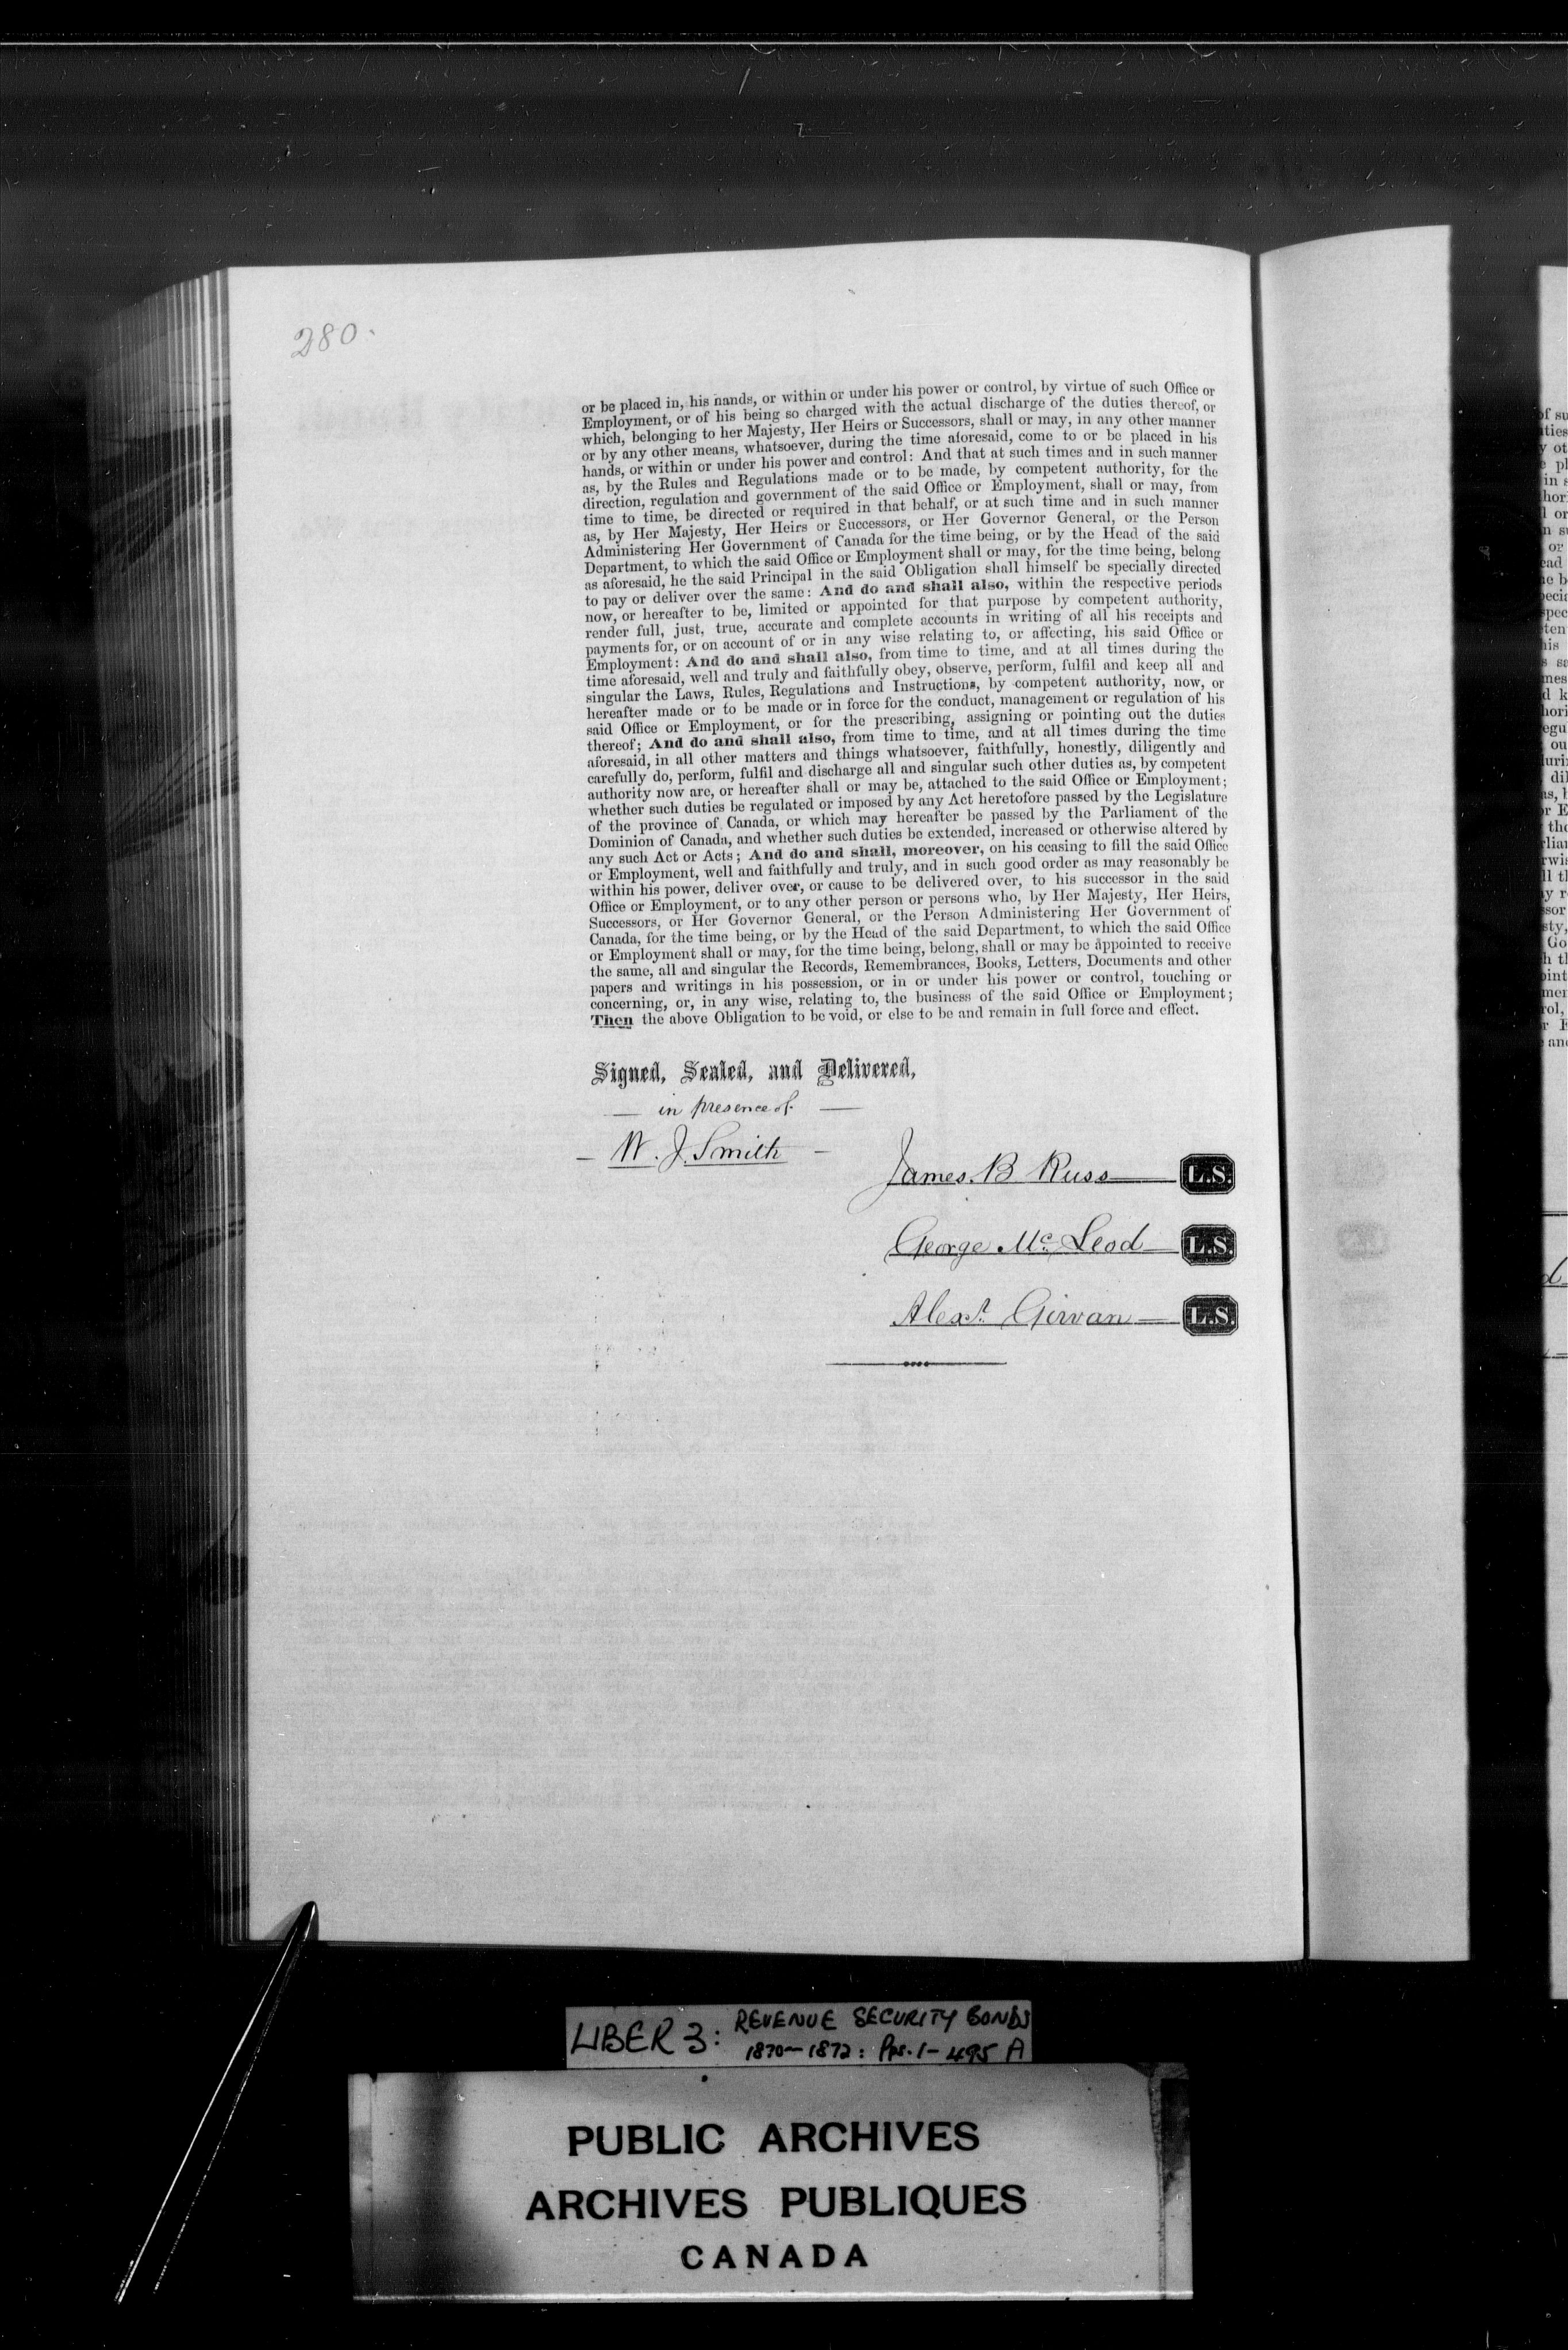 280.
or be placed in, his hands, or within or under his power or control, by virtue of such Office or
Employment, or of his being so charged with the actual discharge of the duties thereof, or
which, belonging to her Majesty, Her Heirs or Successors, shall or may, in any other manner
or by any other means, whatsoever, during the time aforesaid, come to or be placed in his
hands, or within or under his power and control: And that at such times and in such manner
as, by the Rules and Regulations made or to be made, by competent authority, for the
direction, regulation and government of the said Office or Employment, shall or may, from
time to time, be directed or required in that behalf, or at such time and in such manner
as, by Her Majesty, Her Heirs or Successors, or Her Governor General, or the Person
Administering Her Government of Canada for the time being, or by the Head of the said
Department, to which the said Office or Employment shall or may, for the time being, belong
as aforesaid, he the said Principal in the said Obligation shall himself be specially directed
to pay or deliver over the same: And do and shall also, within the respective periods
now, or hereafter to be, limited or appointed for that purpose by competent authority,
render full, just, true, accurate and complete accounts in writing of all his receipts and
payments for, or on account of or in any wise relating to, or affecting, his said Office or
Employment: And do and shall also, from time to time, and at all times during the
time aforesaid, well and truly and faithfully obey, observe, perform, fulfil and keep all and
singular the Laws, Rules, Regulations and Instructions, by competent authority, now, or
hereafter made or to be made or in force for the conduct, management or regulation of his
said Office or Employment, or for the prescribing, assigning or pointing out the duties
thereof; And do and shall also, from time to time, and at all times during the time
aforesaid, in all other matters and things whatsoever, faithfully, honestly, diligently and
carefully do, perform, fulfil and discharge all and singular such other duties as, by competent
authority now are, or hereafter shall or may be, attached to the said Office or Employment;
whether such duties be regulated or imposed by any Act heretofore passed by the Legislature
of the province of Canada, or which may hereafter be passed by the Parliament of the
Dominion of Canada, and whether such duties be extended, increased or otherwise altered by
any such Act or Acts; And do and shall, moreover, on his ceasing to fill the said Office
or Employment, well and faithfully and truly, and in such good order as may reasonably be
within his power, deliver over, or cause to be delivered over, to his successor in the said
Office or Employment, or to any other person or persons who, by Her Majesty, Her Heirs,
Successors, or Her Governor General, or the Person Administering Her Government of
Canada, for the time being, or by the Head of the said Department, to which the said Office
or Employment shall or may, for the time being, belong, shall or may be appointed to receive
the same, all and singular the Records, Remembrances, Books, Letters, Documents and other
papers and writings in his possession, or in or under his power or control, touching or
concerning, or, in any wise, relating to, the business of the said Office or Employment;
Then the above Obligation to be void, or else to be and remain in full force and effect.
Signed, Sealed, and Delivered,
— in presence of —
— W. J. Smith —
James. B Russ L.S.
George McLeod L.S.
Alexr. Girvan L.S.
LIBER 3: REVENUE SECURITY BONDS
1870-1872: Pps. 1-495 A
PUBLIC ARCHIVES
ARCHIVES PUBLIQUES
CANADA